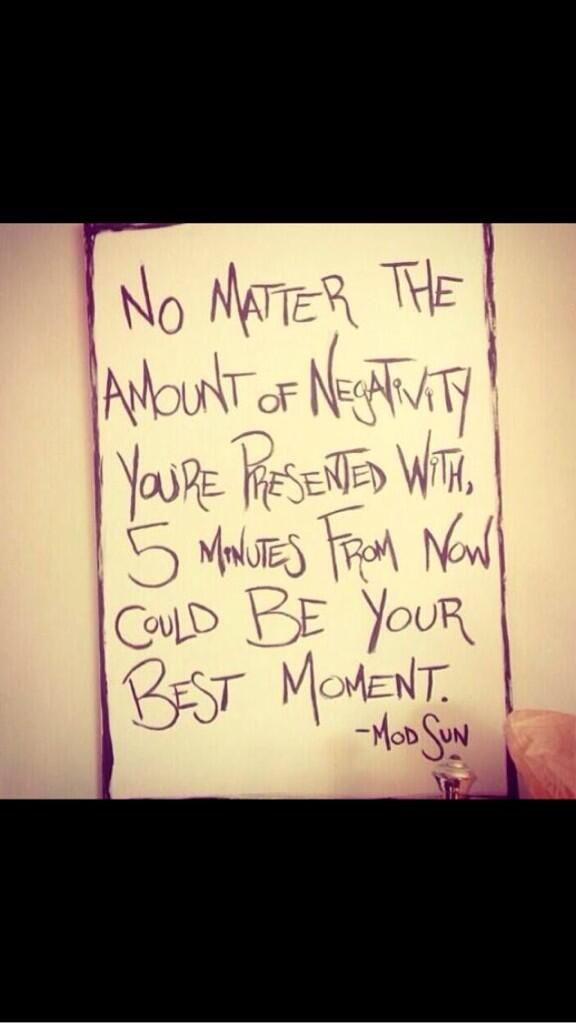 No MATTER THE
AMOUNT OF NEgATiViTY
YOU'RE PRESENTED WiTH,
5 MiNUTES FROM NOW
COULD BE YOUR
BEST MOMENT.
-MOD SUN